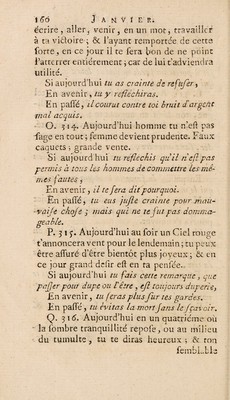 160 JANVIER.
écrire, aller, venir, en un mot, travailler
à ta victoire; & l'ayant remportée de cette
sorte, en ce jour il te sera bon de ne point
l'atterrer entiérement; car de lui t'adviendra
utilité.
Si aujourd'hui tu as crainte de refuser,
En avenir, tu y réfléchiras.
En passé, il courut contre toi bruit d'argent
mal acquis.
O. 314. Aujourd'hui homme tu n'est pas
sage en tout; femme devient prudente. Faux
caquets; grande vente.
Si aujourd'hui tu réfléchis qu'il n'est pas
permis à tous les hommes de commettre les mê-
mes fautes,
En avenir, il te sera dit pourquoi.
En passé, tu eus juste crainte pour mau-
vaise chose; mais qui ne te fut pas domma-
geable.
P. 315. Aujourd'hui au soir un Ciel rouge
t'annoncera vent pour le lendemain; tu peux
être assuré d'être bientôt plus joyeux; & en
ce jour grand desir est en ta pensée.
Si aujourd'hui tu fais cette remarque, que
passer pour dupe ou l'être, est toujours duperie,
En avenir, tu seras plus sur tes gardes.
En passé, tu évitas la mort sans le sçavoir.
Q. 316. Aujourd'hui en un quatriéme où
la sombre tranquillité repose, ou au milieu
du tumulte, tu te diras heureux; & ton
sembla-ble